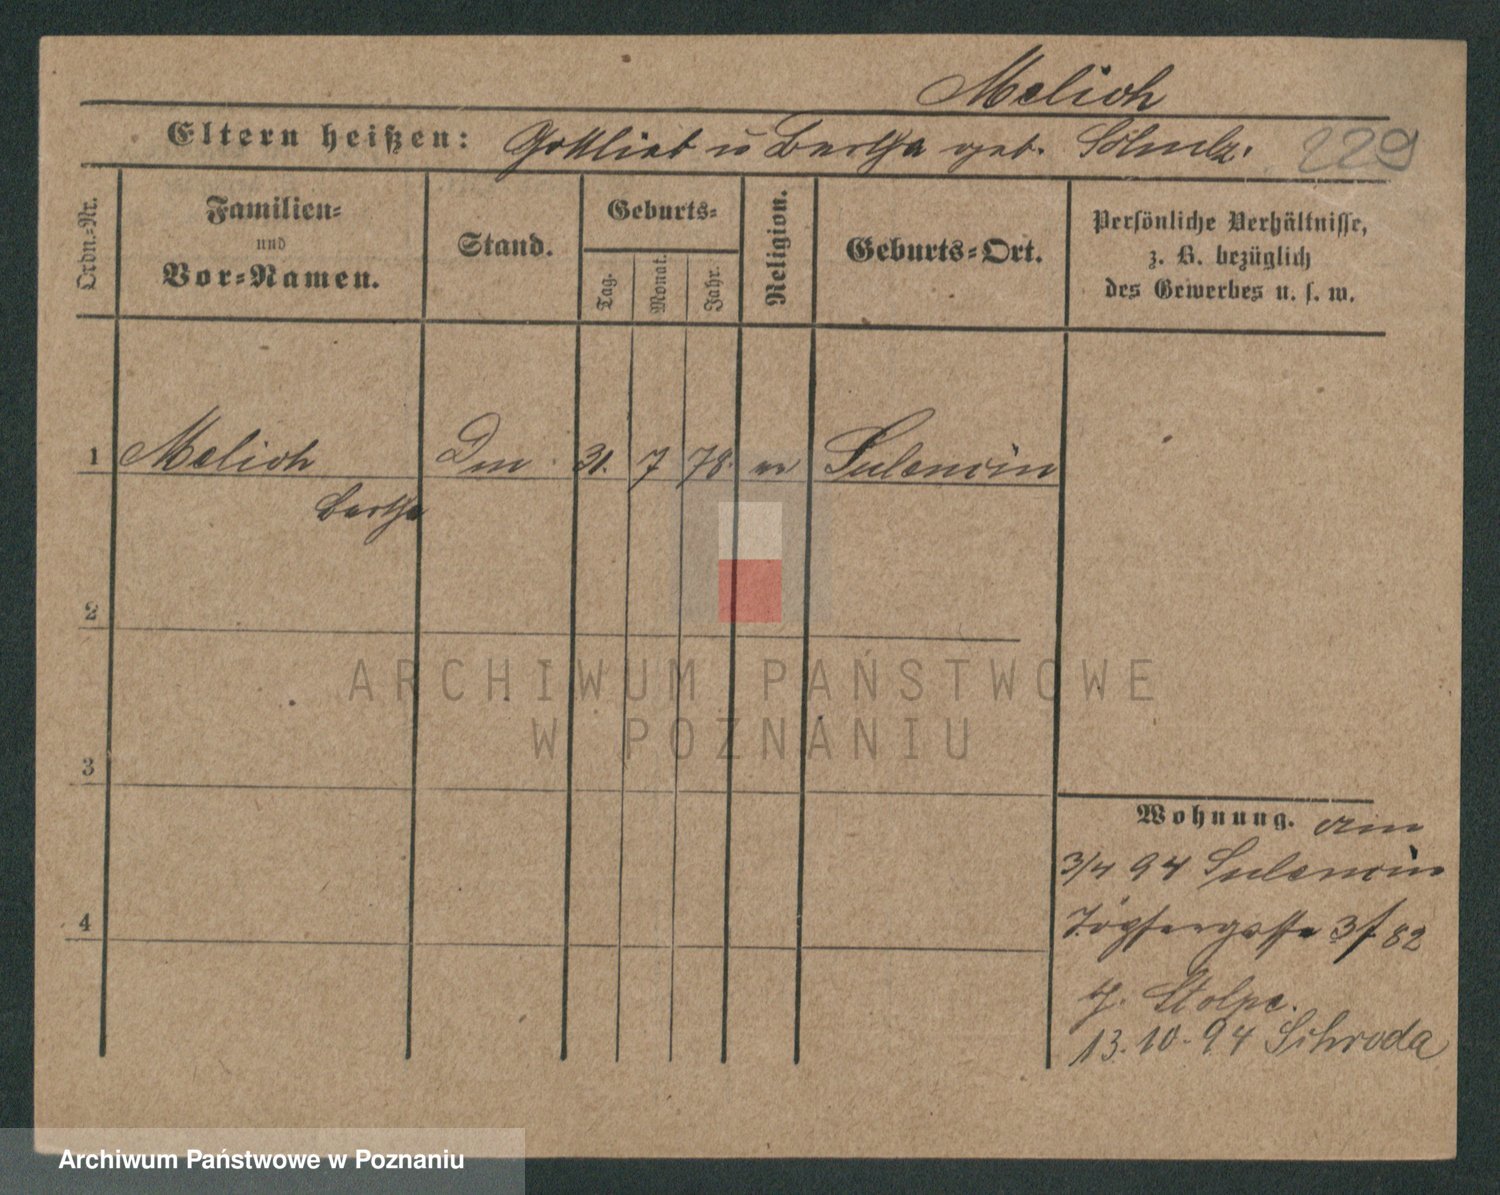 Melich
Eltern heißen: Gottlieb u Bertha geb. Schulz. 229
Ordn.-Nr.
Familien-
und
Vor-Namen.
Stand.
Geburts-
Tag.
Monat.
Jahr.
Religion.
Geburts-Ort.
Persönliche Verhältnisse,
z. B. bezüglich
des Gewerbes u. s. w.
1 Melich 31. 7 78. ev Sulencin
Bertha
2
3
4
Wohnung. am
3/4 94 Sulencin
Töpfergasse 3 f. 82
Stolpe.
13. 10. 94 Schroda
ARCHIWUM PAŃSTWOWE
W POZNANIU
Archiwum Państwowe w Poznaniu